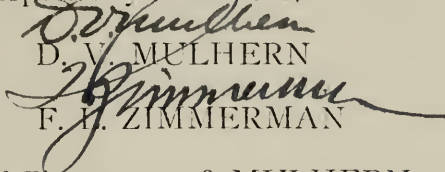 D. V. Mulhern
D. V. MULHERN
Zimmerman
F. E. ZIMMERMAN
& MULHERN